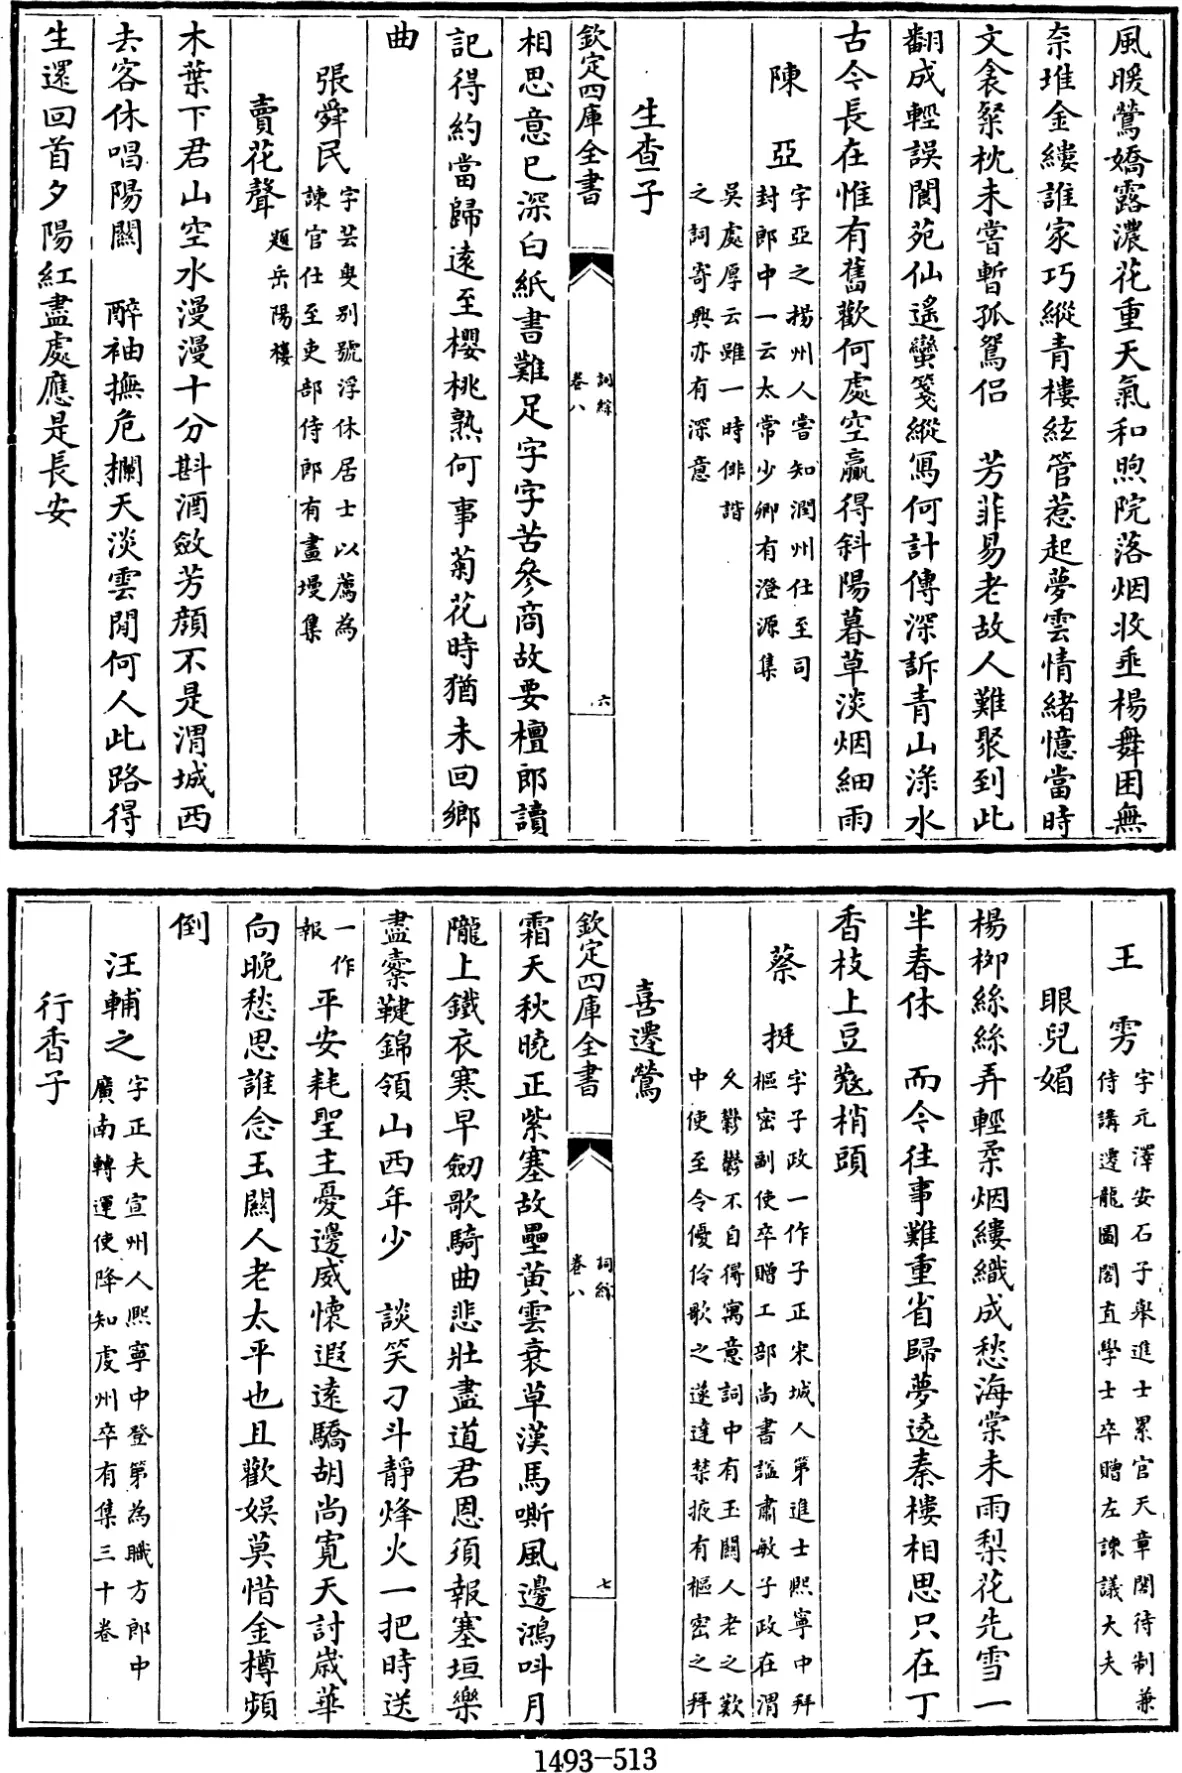 風暖鶯嬌露濃花重天氣和煦院落烟收垂楊舞困無
奈堆金縷誰家巧縱青樓絃管惹起夢雲情緒憶當時
文衾粲枕未嘗暫孤鴛侣　芳菲易老故人難聚到此
翻成輕誤閬苑仙遥蠻箋縱寫何計傳深訴青山淥水
古今長在惟有舊歡何處空贏得斜陽暮草淡烟細雨
陳　亞
字亞之揚州人嘗知潤州仕至司
封郎中一云太常少卿有澄源集
吳處厚云雖一時俳諧
之詞寄興亦有深意
生查子
欽定四庫全書
詞綜
卷八
六
相思意已深白紙書難足字字苦參商故要檀郎讀
記得約當歸遠至櫻桃熟何事菊花時猶未回鄉
曲
張舜民
字芸叟别號浮休居士以薦為
諫官仕至吏部侍郎有畫墁集
賣花聲
題岳陽樓
木葉下君山空水漫漫十分斟酒斂芳顔不是渭城西
去客休唱陽關　醉袖撫危欄天淡雲閒何人此路得
生還回首夕陽紅盡處應是長安
王　雱
字元澤安石子舉進士累官天章閣待制兼
侍講遷龍圖閣直學士卒贈左諫議大夫
眼兒媚
楊柳絲絲弄輕柔烟縷織成愁海棠未雨梨花先雪一
半春休　而今往事難重省歸夢遶秦樓相思只在丁
香枝上豆蔻梢頭
蔡　挺
字子政一作子正宋城人第進士熙寧中拜
樞密副使卒贈工部尚書諡肅敏子政在渭
久鬱鬱不自得寓意詞中有玉關人老之歎
中使至令優伶歌之遂達禁掖有樞密之拜
喜遷鶯
欽定四庫全書
詞綜
卷八
七
霜天秋曉正紫塞故壘黄雲衰草漢馬嘶風邊鴻呌月
隴上鐵衣寒早劒歌騎曲悲壯盡道君恩須報塞垣樂
盡櫜鞬錦領山西年少　談笑刁斗静烽火一把時送
一作
報
平安耗聖主憂邊威懷遐遠驕胡尚寛天討嵗華
向晚愁思誰念玉闗人老太平也且歡娱莫惜金樽頻
倒
汪輔之
字正夫宣州人熙寧中登第為職方郎中
廣南轉運使降知虔州卒有集三十卷
行香子
1493-513